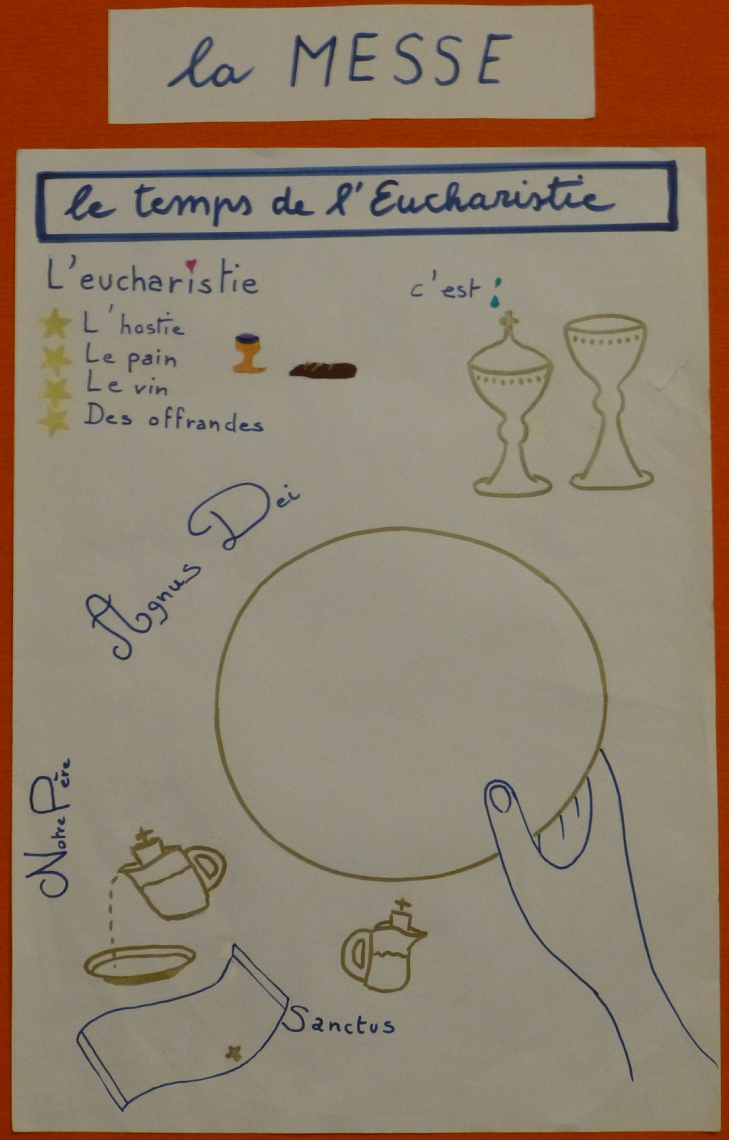 la MESSE
le temps de l'Eucharistie
L'eucharistie
c'est :
L'hostie
Le pain
Le vin
Des offrandes
Agnus Dei
Notre Père
Sanctus